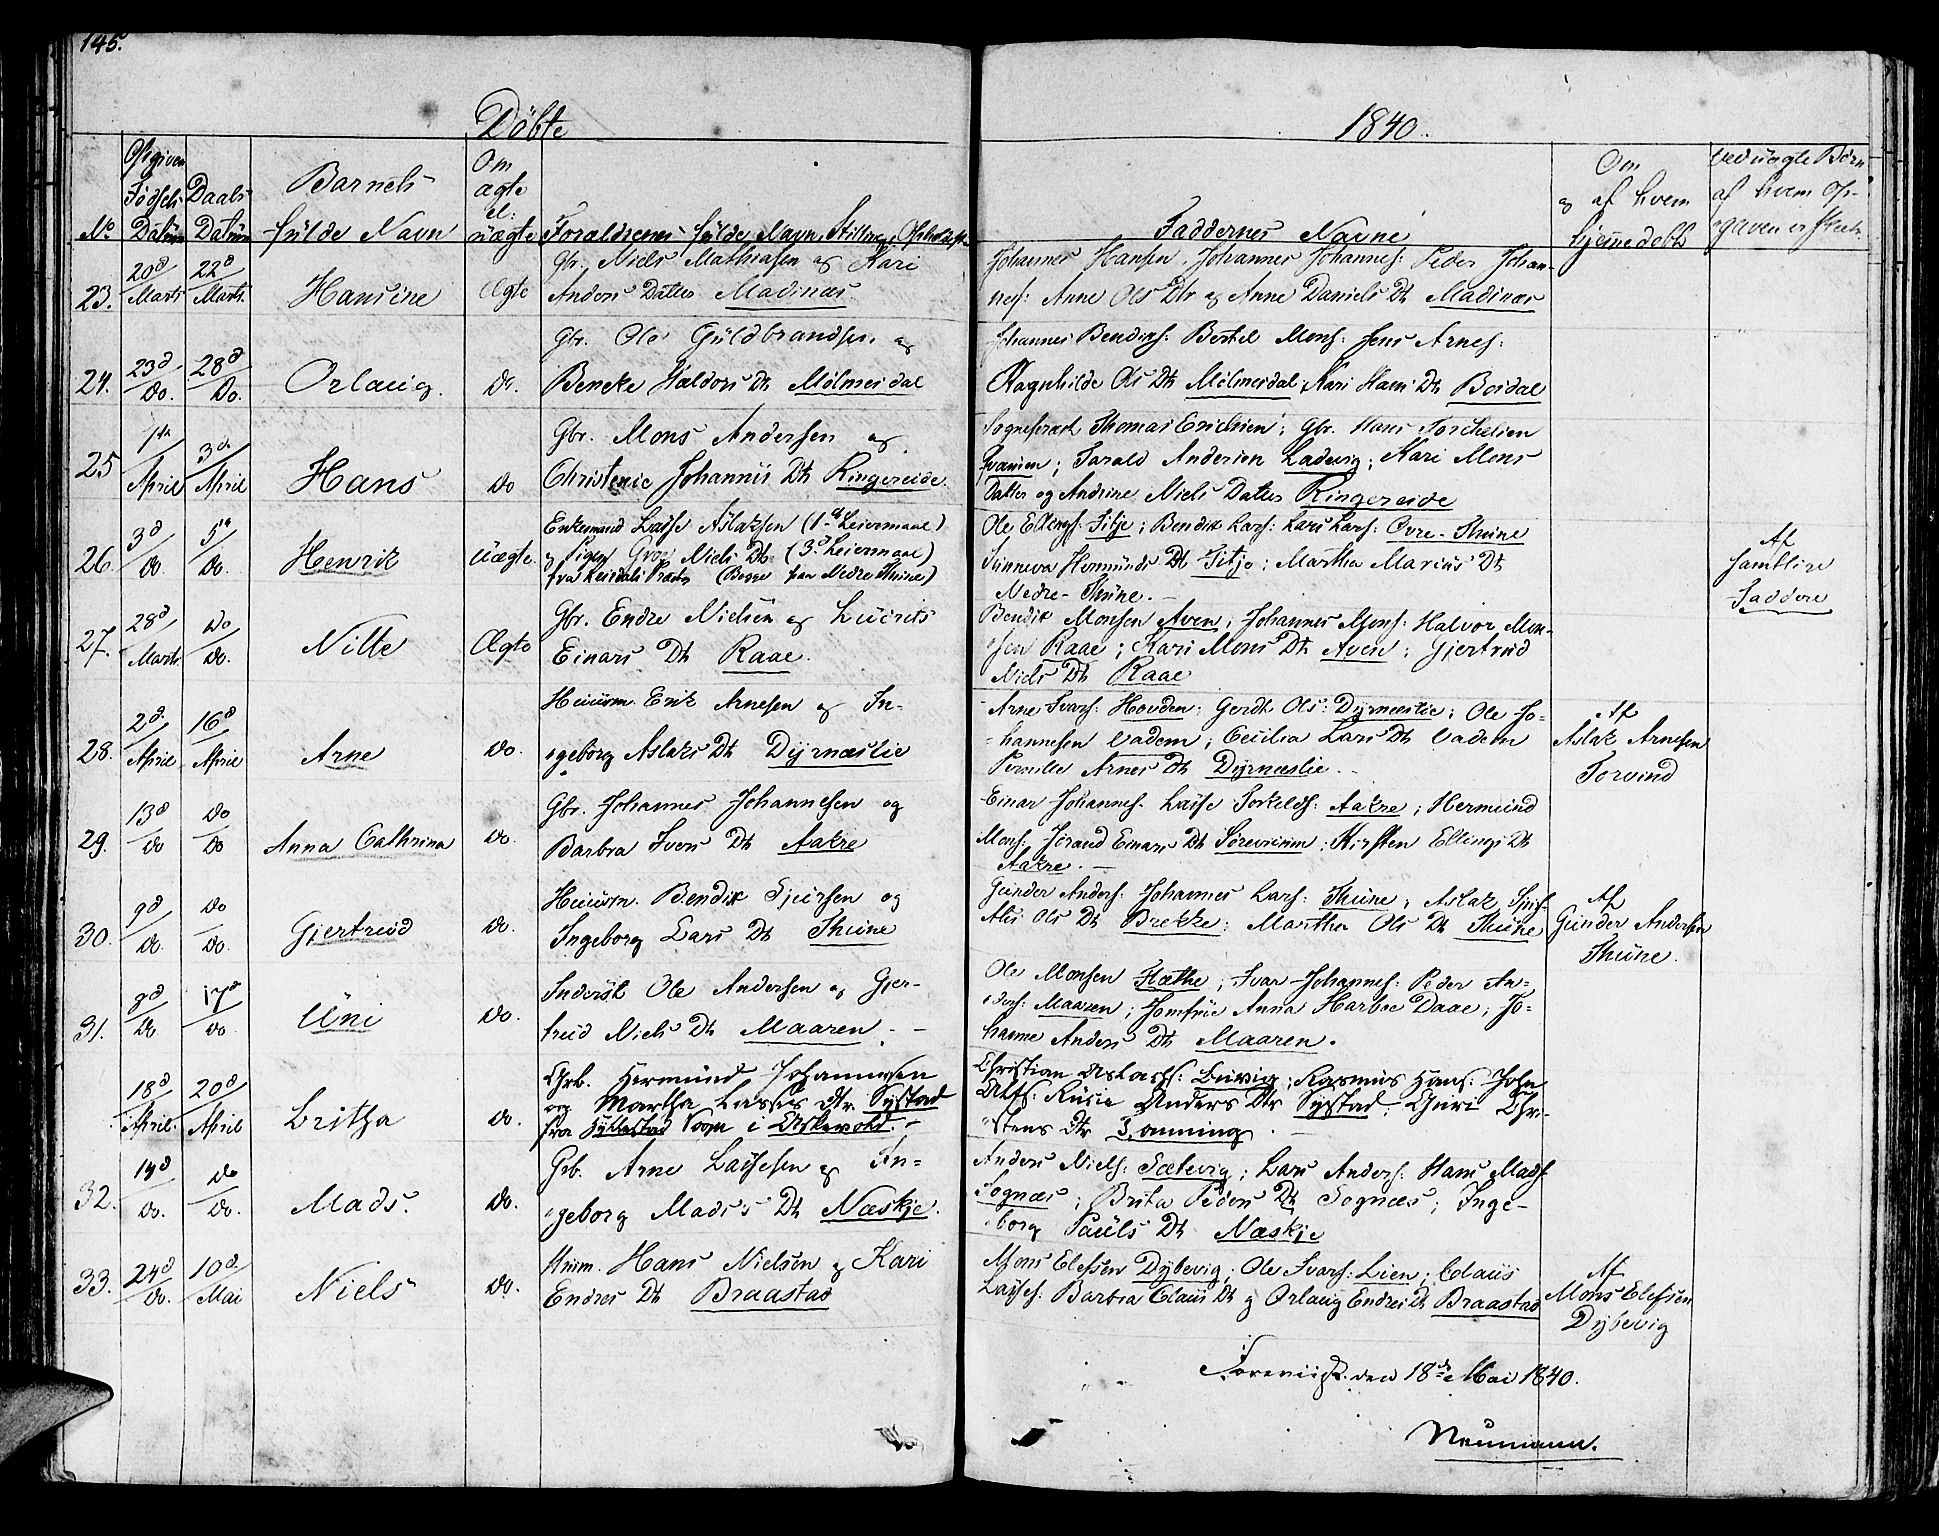 145.
Døbte
1840.
No
Opgiven Fødsels Datum
Daabs Datum
Barnets fulde Navn
Om ægte el: uægte
Forældrenes fulde Navn, Stilling, Opholdsst.
Faddernes Navne
Om og af hvem hjemmedøbt
ved uægte Børn af hvem Opgaven er skeet.
23.
20d/Marts
22d/Marts
Hansine
Ægte
Gbr. Niels Mathiasen og Kari
Anders Datter Madinæs
Johannes Hansen, Johannes Johannes: Peder Johan-
nes: Anne Ols Dtr og Anne Daniels Dt Madinæs
24.
23d/Do.
28d/Do.
Orlaug.
do.
Gbr. Ole Guldbrandsen og
Bencke Haldors Dt Mølmesdal
Johannes Bendixs: Bertel Mons: Jens Arnes:
Ragnhilde Ols Dt Mølmesdal; Kari Hans Dt Bordal
25
1ste/April
3die/April
Hans
do
Gbr. Mons Andersen og
Christense Johannis Dt Ringereide.
Thomas Erichsen; Gbr. Hans Torchelsen
Kvammen; Harald Andersen Ladvig; Kari Mons
Datter og Andrine Niels Datter Ringereide
26.
3d/do.
5te/Do.
Henrik
uægte.
Enkemand Lasse Aslaksen (1ste Leiermaal)
og Pigen Groe Niels Dt (3die Leiermaal)
Ole Ellings: Titje; Bendix Lars: Lars Lars: Øvre-Thune
Synneva Hermunds Dt Titje; Martha Marius Dt
Nedre-Thune.
Af
samtlige
Faddere
27.
28d/Marts
Do/do.
Nille
Ægte
Gbr. Endre Nielsen og Lucrets
Einars Dt Raae.
Bendix Monsen Aven; Johannes Mons: Halvor Mon-
sen Raae; Kari Mons Dt Aven; Gjertrud
Niels Dt Raae
28.
2d/April
16d/April
Arne
do.
Huusm. Erik Arnesen og In-
geborg Aslaks Dt Dyrnæslie
Arne Ivars: Houden; Gerdt Ols: Dyrnæslie; Ole Jo-
hannesen Vadem; Cecilia Lars Dt Vadem
Pernille Arnes Dt Dyrnæslie.
Af
Aslak Arnesen
Torvund
29.
13d/do
do/do
Anna Cathrina
do.
Gbr. Johannes Johannesen og
Barbra Ivers Dt Aakre
Einar Johannes: Lasse Torkelds: Aakre; Hermund
Mons: Jorand Einars Dt; Kirsten Ellings Dt
Aakre.
30.
9d/do.
do/do.
Gjertrud
do.
Huusm. Bendix Sjursen og
Ingeborg Lars Dt Thune
Gunder Anders: Johannes Lars: Thune; Aslak Sjurs-
Ales Ols Dt Brekke; Martha Ols Dt Thune
Af
Gunder Andersen
Thune.
31.
9d/do
17d/do.
Uni
do.
Inderst Ole Andersen og Gjer-
trud Niels Dt Maaren.
Ole Monsen Flæthe; Ivar Johannes: Peder An-
ders: Maaren; Jomfrue Anna Harboe Daae; Jo-
hanne Anders Dt Maaren.
18d/April.
20d/April
Britha
do.
Grb. Hermund Johannesen
og Martha Lasses Dtr. Systad
fra Hyllestad Sogn i Askevold.
Christian Aslachs: Risvig; Rasmus Hans: John
Alfs: Anders Dtr Systad; Guri Chri-
stens Dtr
32.
14d/do.
do/do.
Mads.
do.
Grb. Arne Lassesen og In-
geborg Mads's Dt Næskje.
Anders Niels: Sætevig; Lars Anders: Hans Mads:
Sognæs; Brita Peders Dt Sognæs; Inge-
borg Pauls Dt Næskje
33.
24d/do.
10d/Mai
Niels
do.
Huusm. Hans Nielsen og Kari
Endres Dt Braastad
Mons Elefsen Dybevig; Ole Ivars: Lien; Claus
Lasses: Barbra Claus Dt og Orlaug Endres Dt Braastad
Af
Mons Elefsen
Dybevig
Foreviist den 18de Mai 1840.
Neumann.